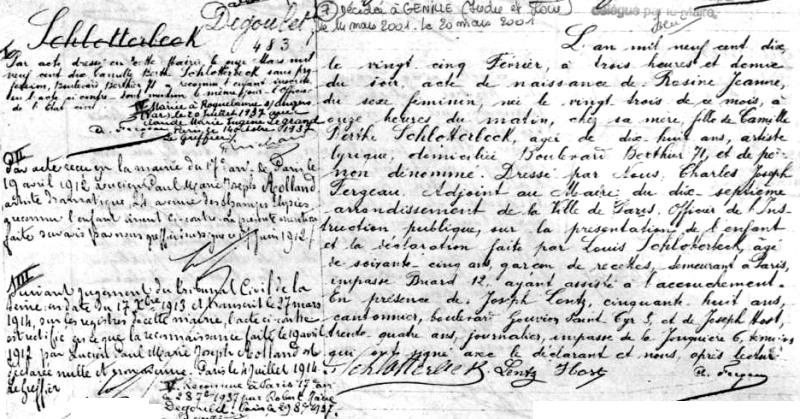 Schlotterbeck
Degoulet
483
Par acte dressé en cette Mairie, le onze Mars mil
neuf cent dix, Camille Berthe Schlotterbeck sans pro
fession, Boulevard Berthier 71, a reconnu l'enfant inscrit
en l'acte ci-contre
de l'Etat civil
IV Mariée à Roquebrune s/ Argens
(Var) le 20 juillet 1937 avec
Claude Marie Eugène Le Grand
Paris le 14 octobre 1937
Le Greffier
II
Par acte reçu en la mairie du 17e arr. de Paris le
19 avril 1912 Lucien Paul Marie Joseph Rolland
artiste dramatique, 25 avenue des Champs Elysées
a reconnu l'enfant inscrit ci-contre. La présente mention
faite par nous greffier soussigné juin 1912
III
Suivant jugement du tribunal Civil de la
Seine, en date du 17 Xbre 1913 et transcrit le 27 mars
1914, sur les registres de cette mairie, l'acte ci-contre
est rectifié en ce que la reconnaissance faite le 19 avril
1912 par Lucien Paul Marie Joseph Rolland est
déclarée nulle et Paris le 4 juillet 1914
Le Greffier
V Reconnue à Paris 17e arr
le 28 7bre 1937 par Robert
Degoulet. Paris le 29 8bre 1937.
7 Décédée à GENILLE (Indre et Loire)
le 14 mars 2001. le 20 mars 2001
délégué par le Maire,
L'an mil neuf cent dix,
le vingt cinq Février, à trois heures et demie
du soir, acte de naissance de Rosine Jeanne,
du sexe féminin, née le vingt trois de ce mois, à
onze heures du matin, chez sa mère, fille de Camille
Berthe Schlotterbeck, agée de dix huit ans, artiste
lyrique, domiciliée Boulevard Berthier 71, et de père
non dénommé. Dressé par Nous, Charles Joseph
Fergeau, Adjoint au Maire du dix-septième
arrondissement de la Ville de Paris, Officier de l'Ins-
truction publique, sur la présentation de l'enfant
et la déclaration faite par Louis Schlotterbeck, agé
de soixante cinq ans, garçon de recettes, demeurant à Paris,
impasse Buard 12, ayant assisté à l'accouchement.
En présence de Joseph Lentz, cinquante huit ans,
cantonnier, boulevard Gouvion Saint Cyr 5, et de Joseph Host,
trente quatre ans, journalier, impasse de la Jonquière 6, témoins
qui ont signé avec le déclarant et nous, après lecture
Schlotterbeck Lentz Host